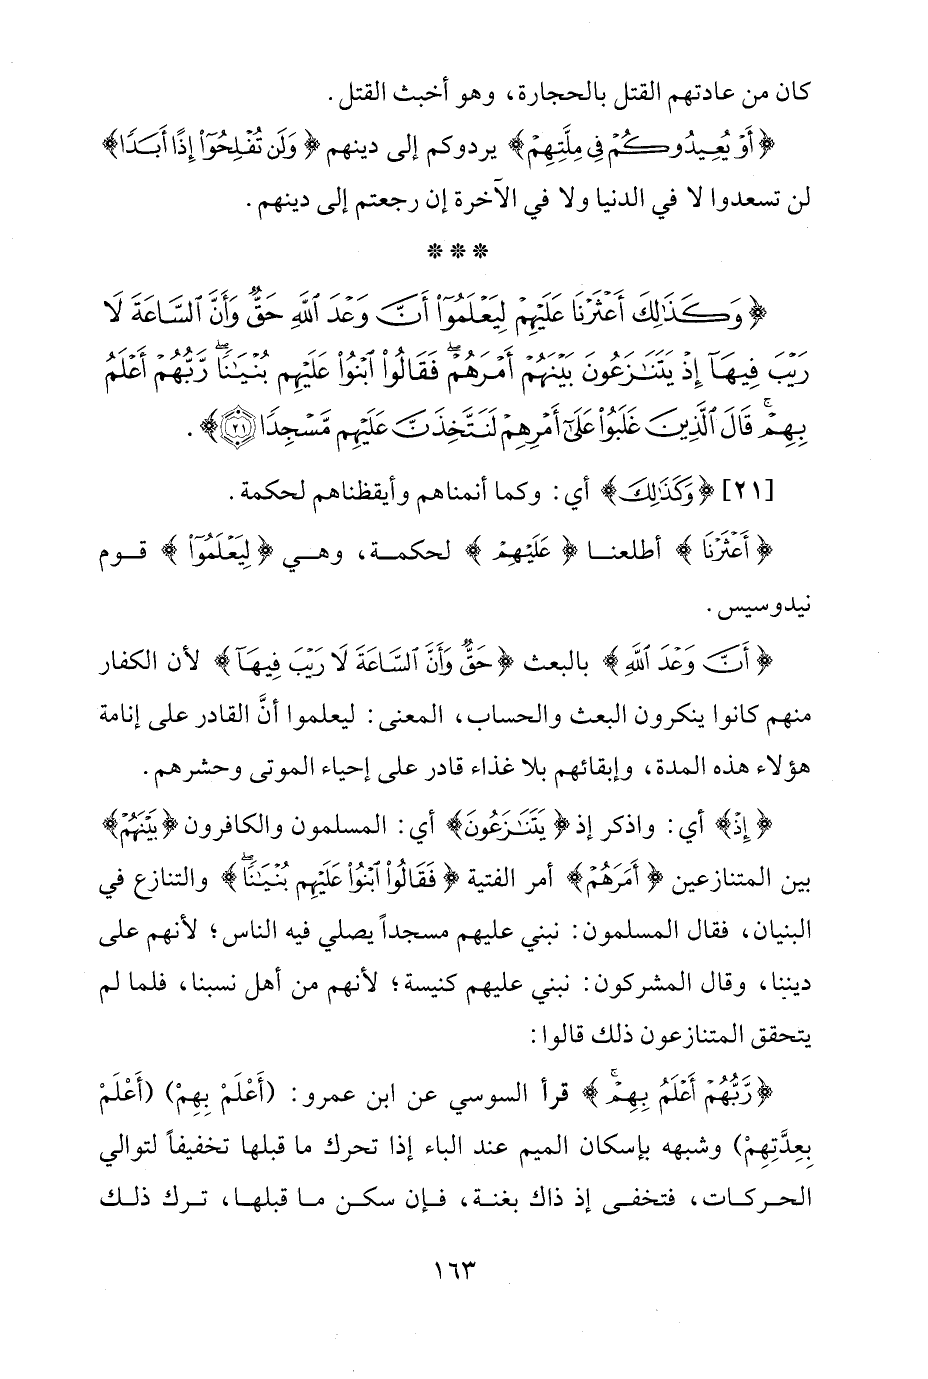 كان من عادتهم القتل بالحجارة، وهو أخبث القتل.
﴿أَوْ يُعِيدُوكُمْ فِي مِلَّتِهِمْ﴾ يردوكم إلى دينهم ﴿وَلَن تُفْلِحُوٓاْ إِذًا أَبَدًا﴾
لن تسعدوا لا في الدنيا ولا في الآخرة إن رجعتم إلى دينهم.
***
﴿وَكَذَٰلِكَ أَعْثَرْنَا عَلَيْهِمْ لِيَعْلَمُوٓاْ أَنَّ وَعْدَ ٱللَّهِ حَقٌّ وَأَنَّ ٱلسَّاعَةَ لَا
رَيْبَ فِيهَآ إِذْ يَتَنَٰزَعُونَ بَيْنَهُمْ أَمْرَهُمْۖ فَقَالُواْ ٱبْنُواْ عَلَيْهِم بُنْيَٰنًاۖ رَّبُّهُمْ أَعْلَمُ
بِهِمْۚ قَالَ ٱلَّذِينَ غَلَبُواْ عَلَىٰٓ أَمْرِهِمْ لَنَتَّخِذَنَّ عَلَيْهِم مَّسْجِدًا ٢١﴾.
[٢١] ﴿وَكَذَٰلِكَ﴾ أي: وكما أنمناهم وأيقظناهم لحكمة.
﴿أَعْثَرْنَا﴾ أطلعنا ﴿عَلَيْهِمْ﴾ لحكمة، وهي ﴿لِيَعْلَمُوٓاْ﴾ قوم
نيدوسيس.
﴿أَنَّ وَعْدَ ٱللَّهِ﴾ بالبعث ﴿حَقٌّ وَأَنَّ ٱلسَّاعَةَ لَا رَيْبَ فِيهَآ﴾ لأن الكفار
منهم كانوا ينكرون البعث والحساب، المعنى: ليعلموا أنَّ القادر على إنامة
هؤلاء هذه المدة، وإبقائهم بلا غذاء قادر على إحياء الموتى وحشرهم.
﴿إِذْ﴾ أي: واذكر إذ ﴿يَتَنَٰزَعُونَ﴾ أي: المسلمون والكافرون ﴿بَيْنَهُمْ﴾
بين المتنازعين ﴿أَمْرَهُمْ﴾ أمر الفتية ﴿فَقَالُواْ ٱبْنُواْ عَلَيْهِم بُنْيَٰنًاۖ﴾ والتنازع في
البنيان، فقال المسلمون: نبني عليهم مسجداً يصلي فيه الناس؛ لأنهم على
ديننا، وقال المشركون: نبني عليهم كنيسة؛ لأنهم من أهل نسبنا، فلما لم
يتحقق المتنازعون ذلك قالوا:
﴿رَّبُّهُمْ أَعْلَمُ بِهِمْۚ﴾ قرأ السوسي عن ابن عمرو: (أَعْلَمْ بِهِمْ) (أَعْلَمْ
بِعِدَّتِهِمْ) وشبهه بإسكان الميم عند الباء إذا تحرك ما قبلها تخفيفاً لتوالي
الحركات، فتخفى إذ ذاك بغنة، فإن سكن ما قبلها، ترك ذلك
١٦٣